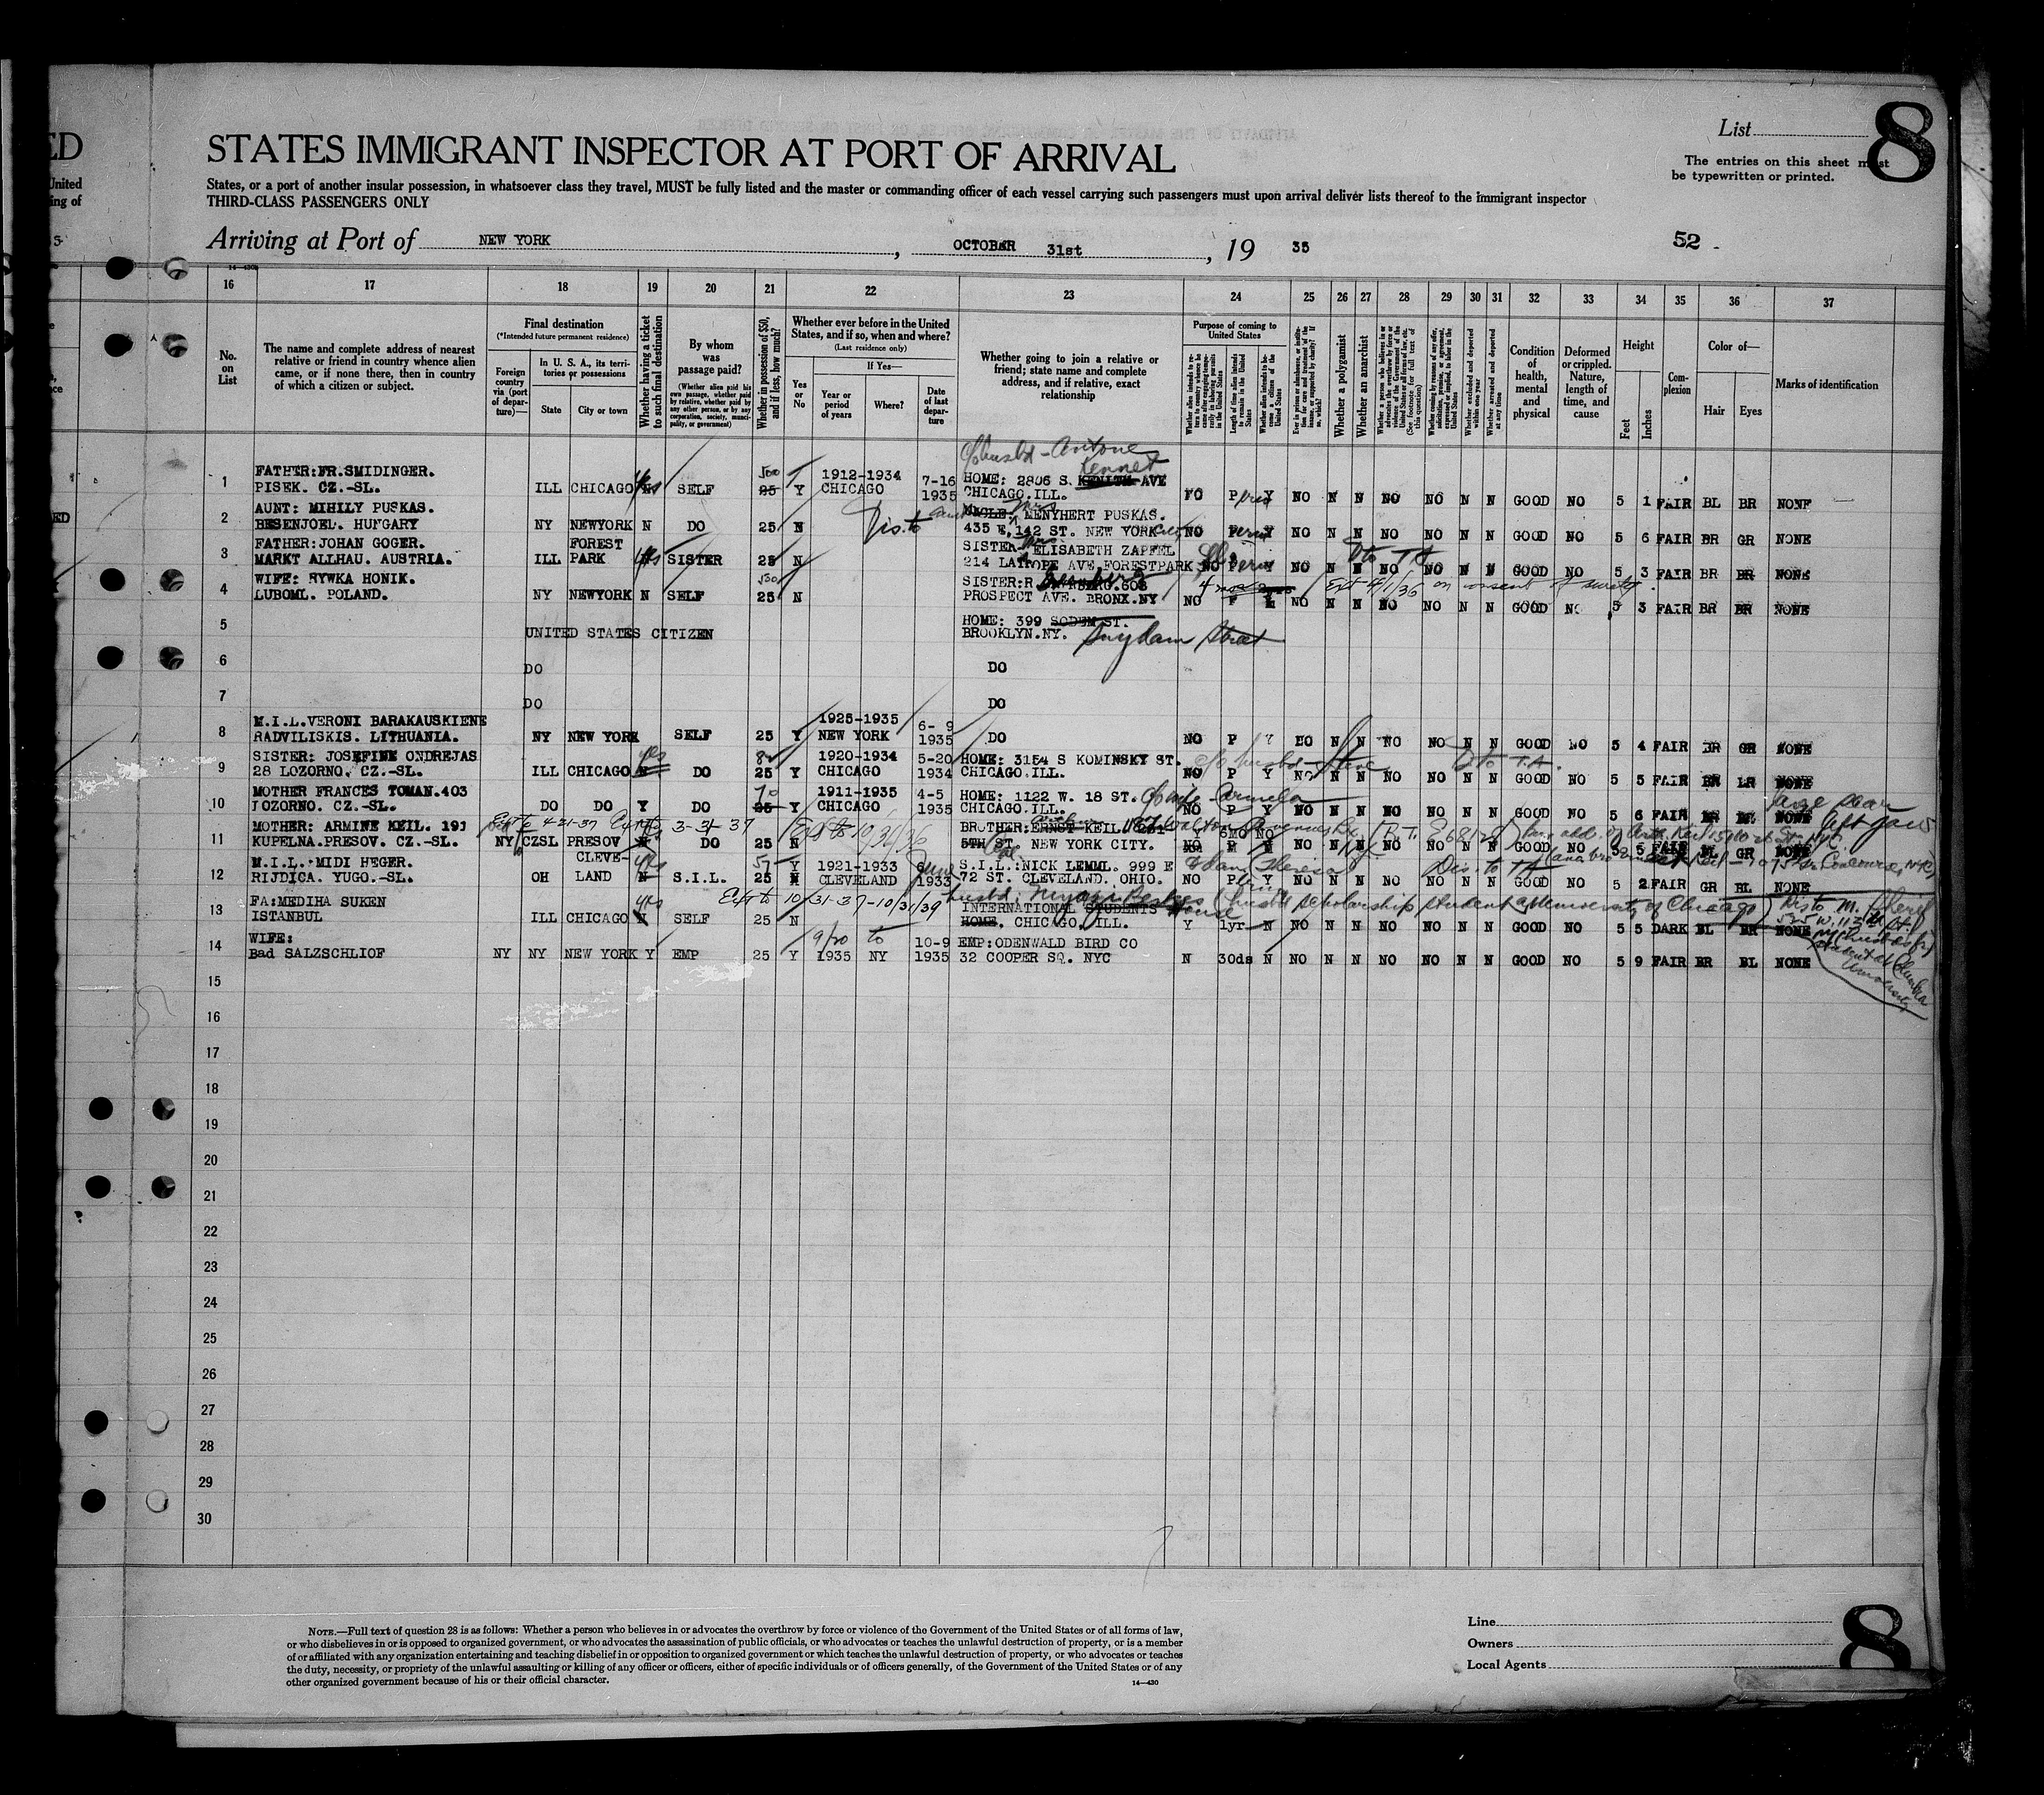 List
8
STATES IMMIGRANT INSPECTOR AT PORT OF ARRIVAL
The entries on this sheet must
be typewritten or printed.
States, or a port of another insular possession, in whatsoever class they travel, MUST be fully listed and the master or commanding officer of each vessel carrying such passengers must upon arrival deliver lists thereof to the immigrant inspector
THIRD-CLASS PASSENGERS ONLY
Arriving at Port of NEW YORK, OCTOBER 31st, 19 35
52
16 17 18 19 20 21 22 23 24 25 26 27 28 29 30 31 32 33 34 35 36 37
No. on List
The name and complete address of nearest relative or friend in country whence alien came, or if none there, then in country of which a citizen or subject.
Final destination
(*Intended future permanent residence)
Foreign country via (port of departure)—
In U. S. A., its territories or possessions
State
City or town
Whether having a ticket to such final destination
By whom was passage paid?
(Whether alien paid his own passage, whether paid by relative, whether paid by any other person, or by any corporation, society, municipality, or government)
Whether in possession of $50, and if less, how much?
Whether ever before in the United States, and if so, when and where?
(Last residence only)
Yes or No
If Yes—
Year or period of years
Where?
Date of last departure
Whether going to join a relative or friend; state name and complete address, and if relative, exact relationship
Purpose of coming to United States
Length of time alien intends to remain in the United States
Whether a polygamist
Whether an anarchist
(See footnote for full text of this question)
Whether excluded and deported within one year
Whether arrested and deported at any time
Condition of health, mental and physical
Deformed or crippled. Nature, length of time, and cause
Height
Feet
Inches
Complexion
Color of—
Hair
Eyes
Marks of identification
c/o husbd - Antone
Kennet
1 FATHER:FR.SMIDINGER. 1912-1934 7-16 HOME: 2806 S. KENITH AVE
PISEK. CZ.-SL. ILL CHICAGO SELF 25 Y CHICAGO 1935 CHICAGO.ILL. NO P Y NO N N NO NO N N GOOD NO 5 1 FAIR BL BR NONE
2 AUNT: MIHILY PUSKAS. MENYHERT PUSKAS.
BESENJOEL. HUNGARY NY NEWYORK N DO 25 N 435 E, 142 ST. NEW YORK NO NO N N NO NO N N GOOD NO 5 6 FAIR BR GR NONE
3 FATHER:JOHAN GOGER. FOREST SISTER Mrs ELISABETH ZAPFEL
MARKT ALLHAU. AUSTRIA. ILL PARK yes SISTER 25 N 214 LATROPE AVE.FORESTPARK NO NO N N NO NO N N GOOD NO 5 3 FAIR BR BR NONE
4 WIFE: RYWKA HONIK. SISTER:R 608
LUBOML. POLAND. NY NEWYORK N SELF 25 N PROSPECT AVE. BRONX.NY NO NO N N NO NO N N GOOD NO 5 3 FAIR BR BR NONE
Ext 4/1/36 on consent of surety.
5 HOME: 399 SODEM ST.
UNITED STATES CITIZEN BROOKLYN.NY. Suydam Street
6 DO DO
7 DO DO
8 M.I.L.VERONI BARAKAUSKIENE 1925-1935 6- 9
RADVILISKIS. LITHUANIA. NY NEW YORK SELF 25 Y NEW YORK 1935 DO NO P Y NO N N NO NO N N GOOD NO 5 4 FAIR BR GR NONE
9 SISTER: JOSEFINE ONDREJAS yes 1920-1934 5-20 HOME: 3154 S KOMINSKY ST. c/o husbd - Steve
28 LOZORNO. CZ.-SL. ILL CHICAGO DO 25 Y CHICAGO 1934 CHICAGO.ILL. NO P Y NO N N NO NO N N GOOD NO 5 5 FAIR BR NONE
10 MOTHER FRANCES TOMAN.403 70 1911-1935 4-5 HOME: 1122 W. 18 ST. c/o wife - Carmela
LOZORNO. CZ.-SL. DO DO Y DO 25 Y CHICAGO 1935 CHICAGO.ILL. NO P Y NO N N NO NO N N GOOD NO 5 6 FAIR BR BL NONE
large scar left jaw
11 MOTHER: ARMINE KEIL. 191 3-31-37 BROTHER:ERNST KEIL.
KUPELNA.PRESOV. CZ.-SL. NY CZSL PRESOV N DO 25 N 5TH ST. NEW YORK CITY. 6MO NO NO N N NO NO N N GOOD NO 5 5 FAIR BL GR NONE
12 M.I.L.:MIDI HEGER. CLEVE- yes 1921-1933 S.I.L.:NICK LEMML. 999 E
RIJDICA. YUGO.-SL. OH LAND S.I.L. 25 CLEVELAND 1933 72 ST. CLEVELAND. OHIO. NO P Y NO N N NO NO N N GOOD NO 5 2 FAIR GR BL NONE
Ext to 10/31-37-10/31/39
13 FA:MEDIHA SUKEN yes INTERNATIONAL STUDENTS House
ISTANBUL ILL CHICAGO N SELF 25 N HOME. CHICAGO. ILL. Y 1yr N NO N N NO NO N N GOOD NO 5 5 DARK BL BR NONE
scholarship student at University of Chicago
14 WIFE: 9/20 to 10-9 EMP:ODENWALD BIRD CO
Bad SALZSCHLIOF NY NY NEW YORK Y EMP 25 Y 1935 NY 1935 32 COOPER SQ. NYC N 30ds N NO N N NO NO N N GOOD NO 5 9 FAIR BR BL NONE
15
16
17
18
19
20
21
22
23
24
25
26
27
28
29
30
NOTE.—Full text of question 28 is as follows: Whether a person who believes in or advocates the overthrow by force or violence of the Government of the United States or of all forms of law,
or who disbelieves in or is opposed to organized government, or who advocates the assassination of public officials, or who advocates or teaches the unlawful destruction of property, or is a member
of or affiliated with any organization entertaining and teaching disbelief in or opposition to organized government or which teaches the unlawful destruction of property, or who advocates or teaches
the duty, necessity, or propriety of the unlawful assaulting or killing of any officer or officers, either of specific individuals or of officers generally, of the Government of the United States or of any
other organized government because of his or their official character.
14—430
Line
Owners
Local Agents
8